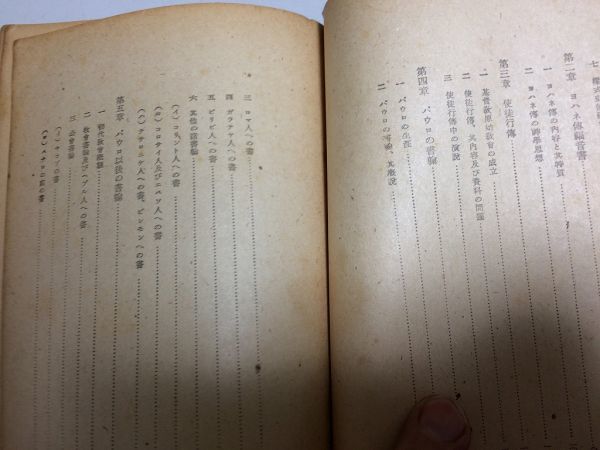 第二章 ヨハネ傳福音書
一 ヨハネ傳の內容と其特質
二 ヨハネ傳の神學思想
第三章 使徒行傳
一 基督敎原始敎會の成立
二 使徒行傳、其內容及び資料の問題
三 使徒行傳中の演說
第四章 パウロの書翰
一 パウロの生涯
二 パウロの書翰、其槪說
三 ロマ人への書
四 ガラテヤ人への書
五 ピリピ人への書
六 其他の諸書翰
(イ) コリント人への書
(ロ) コロサイ人及びエペソ人への書
(ハ) テサロニケ人への書、ピレモンへの書
第五章 パウロ以後の書翰
一 初代敎會書翰
二 牧會書翰及びヘブル人への書
三 公會書翰
(イ) ヤコブの書
(ロ) ペテロ前の書